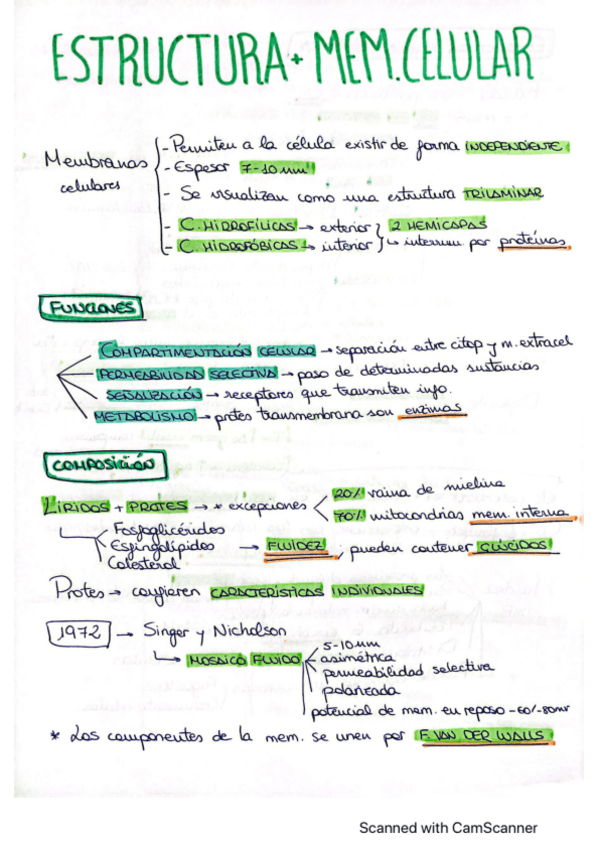 ESTRUCTURA + MEM. CELULAR
Membranas celulares
- Permiten a la célula existir de forma INDEPENDIENTE
- Espesor 7-10 mm
- Se visualizan como una estructura TRILAMINAR
- C. HIDROFÍLICAS → exterior } 2 HEMICAPAS
- C. HIDROFÓBICAS → interior } ↳ interrum por proteínas
FUNCIONES
COMPARTIMENTACIÓN CELULAR → separación entre citop y m. extracel
PERMEABILIDAD SELECTIVA → paso de determinadas sustancias
SEÑALIZACIÓN → receptores que transmiten info.
METABOLISMO → protes transmembrana son enzimas
COMPOSICIÓN
LÍPIDOS + PROTES → * excepciones
20% vaina de mielina
70% mitocondrias mem. interna
Fosfoglicéridos
Esfingolípidos → FLUIDEZ ; pueden contener GLÚCIDOS
Colesterol
Protes → confieren CARACTERÍSTICAS INDIVIDUALES
1972 → Singer y Nicholson
↳ MOSAICO FLUIDO
5-10 mm
asimétrica
permeabilidad selectiva
polarizada
potencial de mem. en reposo -60/-80mv
* Los componentes de la mem. se unen por F. VAN DER WALLS
Scanned with CamScanner